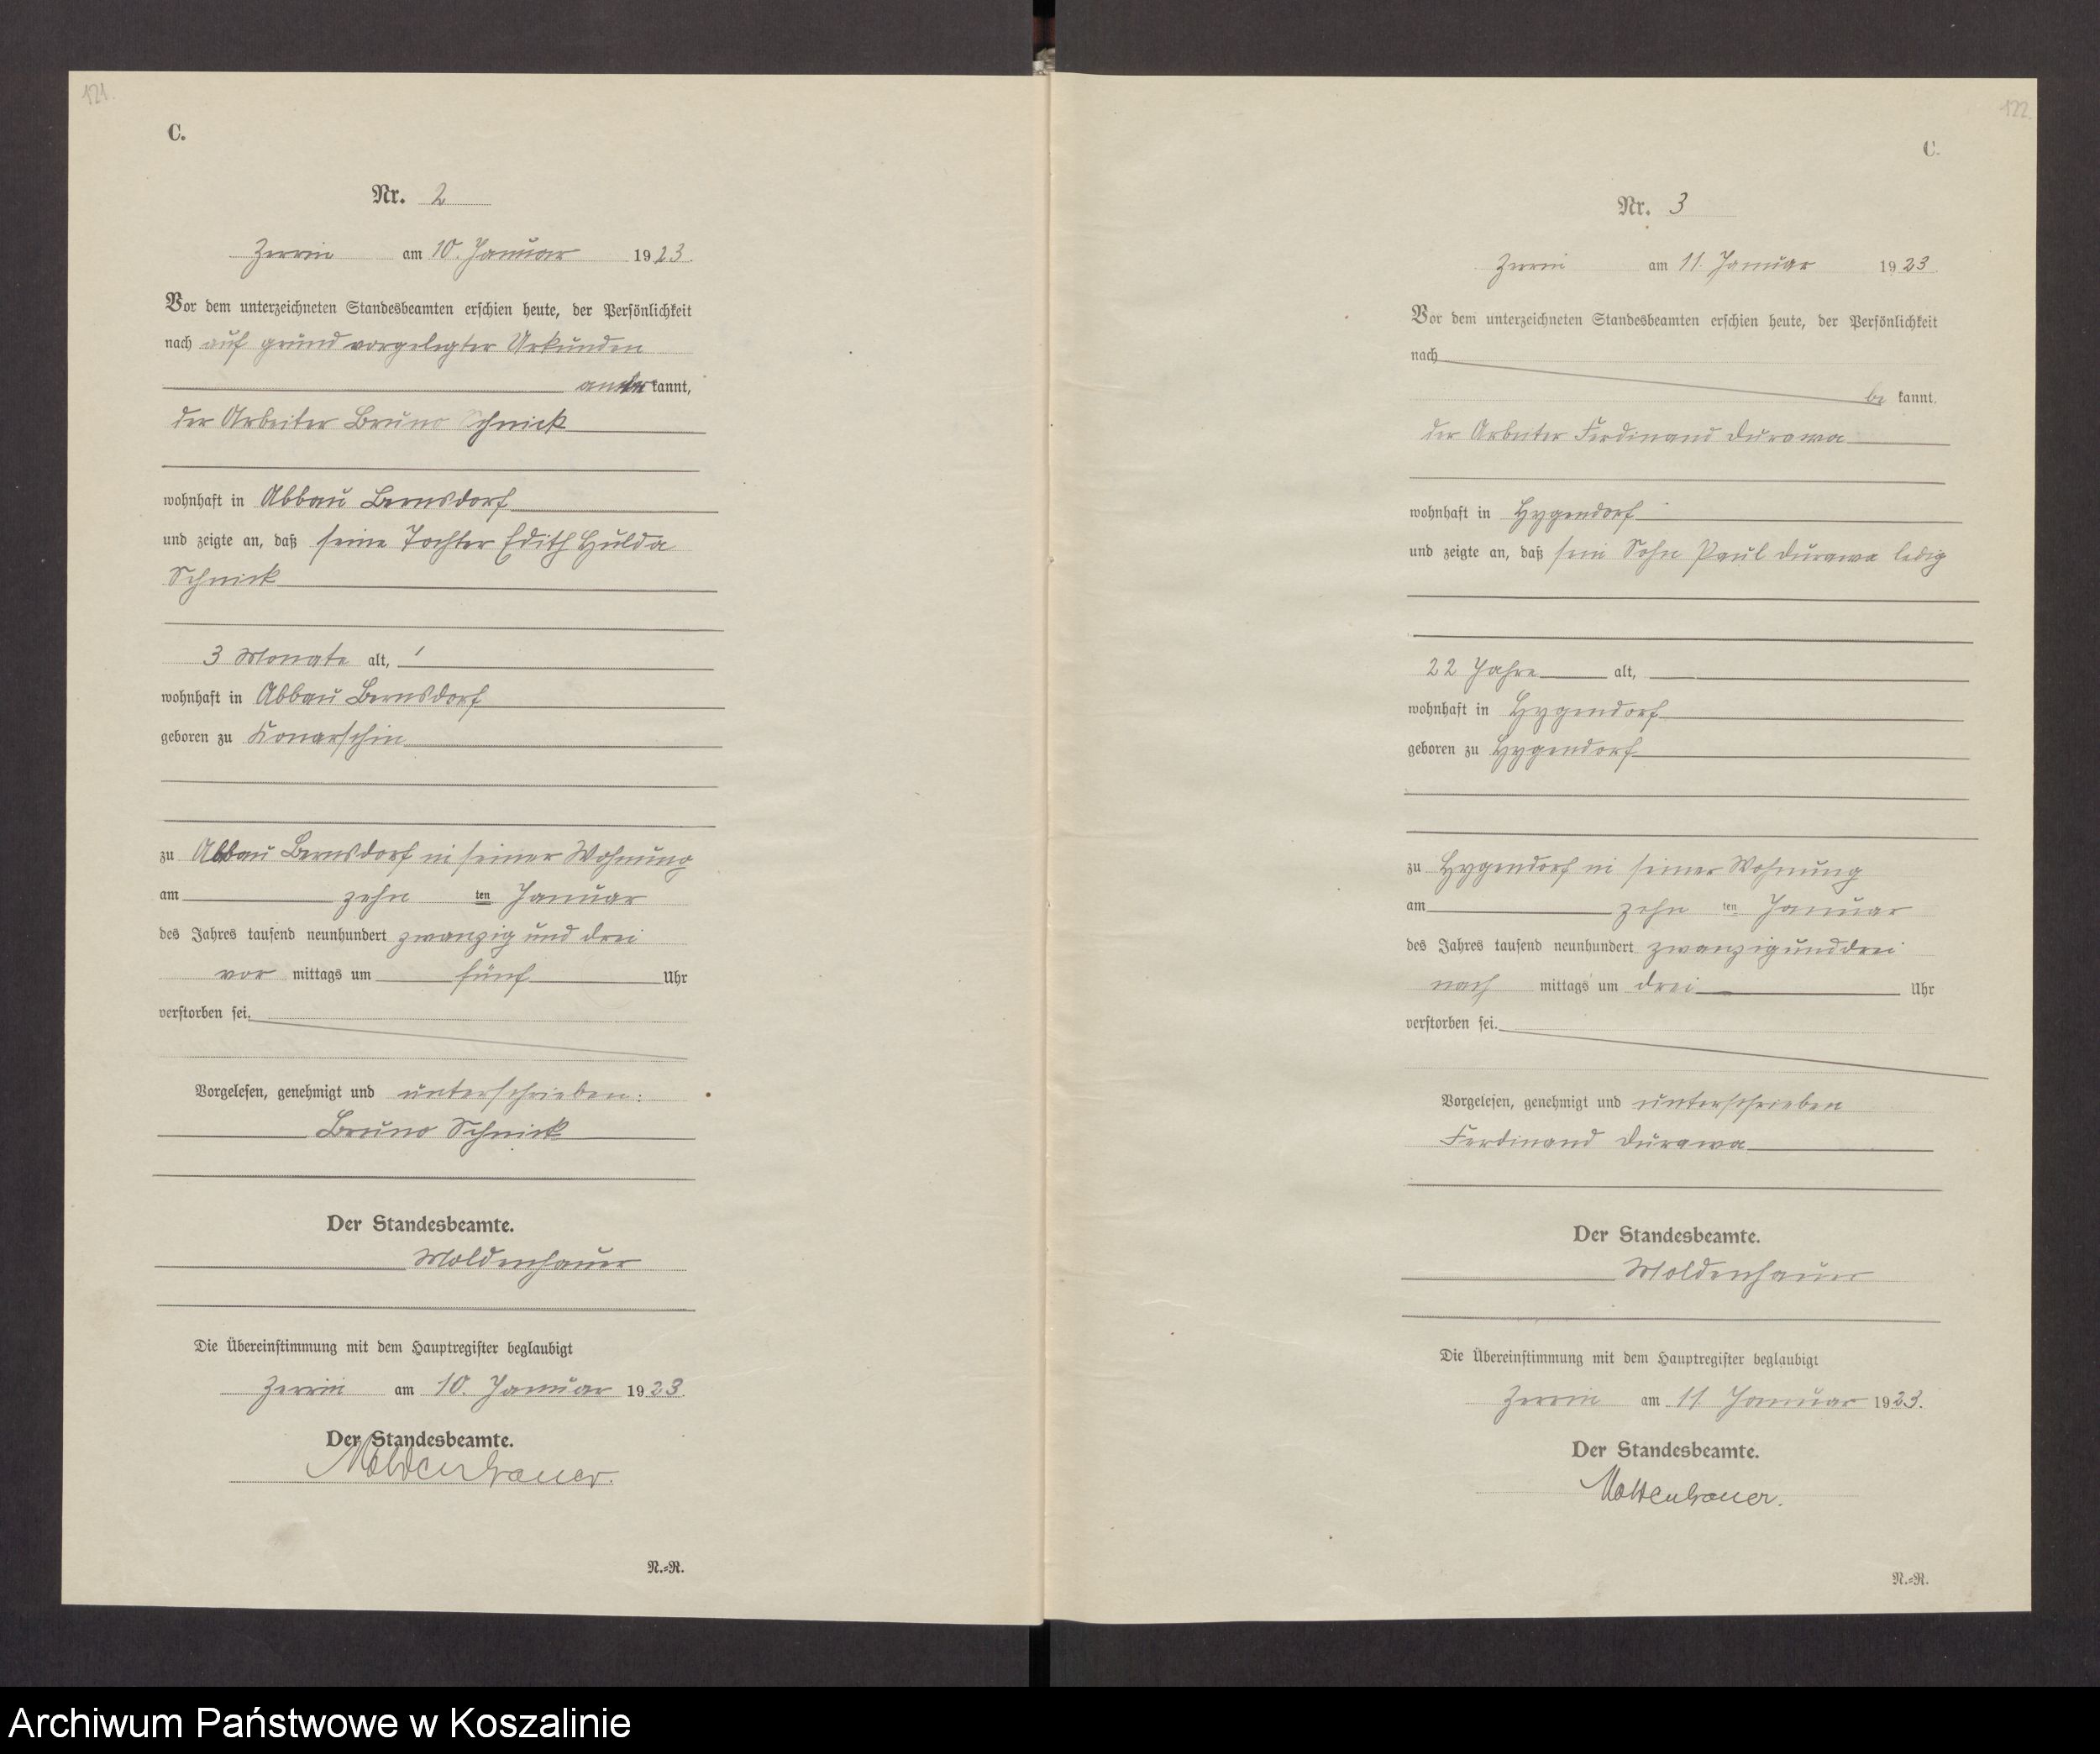 121.
C.
Nr. 2
Zerrin am 10. Januar 1923.
Vor dem unterzeichneten Standesbeamten erschien heute, der Persönlichkeit
nach auf grund vorgelegter Urkunden
anerkannt,
der Arbeiter Bruno Schnick
wohnhaft in Abbau Bernsdorf
und zeigte an, daß seine Tochter Edith Hulda
Schnick
3 Monate alt,
wohnhaft in Abbau Bernsdorf
geboren zu Konarschin
zu Abbau Bernsdorf in seiner Wohnung
am zehn ten Januar
des Jahres tausend neunhundert zwanzig und drei
vor mittags um fünf Uhr
verstorben sei.
Vorgelesen, genehmigt und unterschrieben:
Bruno Schnick
Der Standesbeamte.
Moldenhauer
Die Übereinstimmung mit dem Hauptregister beglaubigt
Zerrin am 10. Januar 1923.
Der Standesbeamte.
Moldenhauer.
N.=R.
122.
C.
Nr. 3
Zerrin am 11. Januar 1923.
Vor dem unterzeichneten Standesbeamten erschien heute, der Persönlichkeit
nach
be kannt,
der Arbeiter Ferdinand Durawa
wohnhaft in Hygendorf
und zeigte an, daß sein Sohn Paul Durawa ledig
22 Jahre alt,
wohnhaft in Hygendorf
geboren zu Hygendorf
zu Hygendorf in seiner Wohnung
am zehn ten Januar
des Jahres tausend neunhundert zwanzigunddrei
nach mittags um drei Uhr
verstorben sei.
Vorgelesen, genehmigt und unterschrieben
Ferdinand Durawa
Der Standesbeamte.
Moldenhauer
Die Übereinstimmung mit dem Hauptregister beglaubigt
Zerrin am 11. Januar 1923.
Der Standesbeamte.
Moldenhauer.
N.=R.
Archiwum Państwowe w Koszalinie